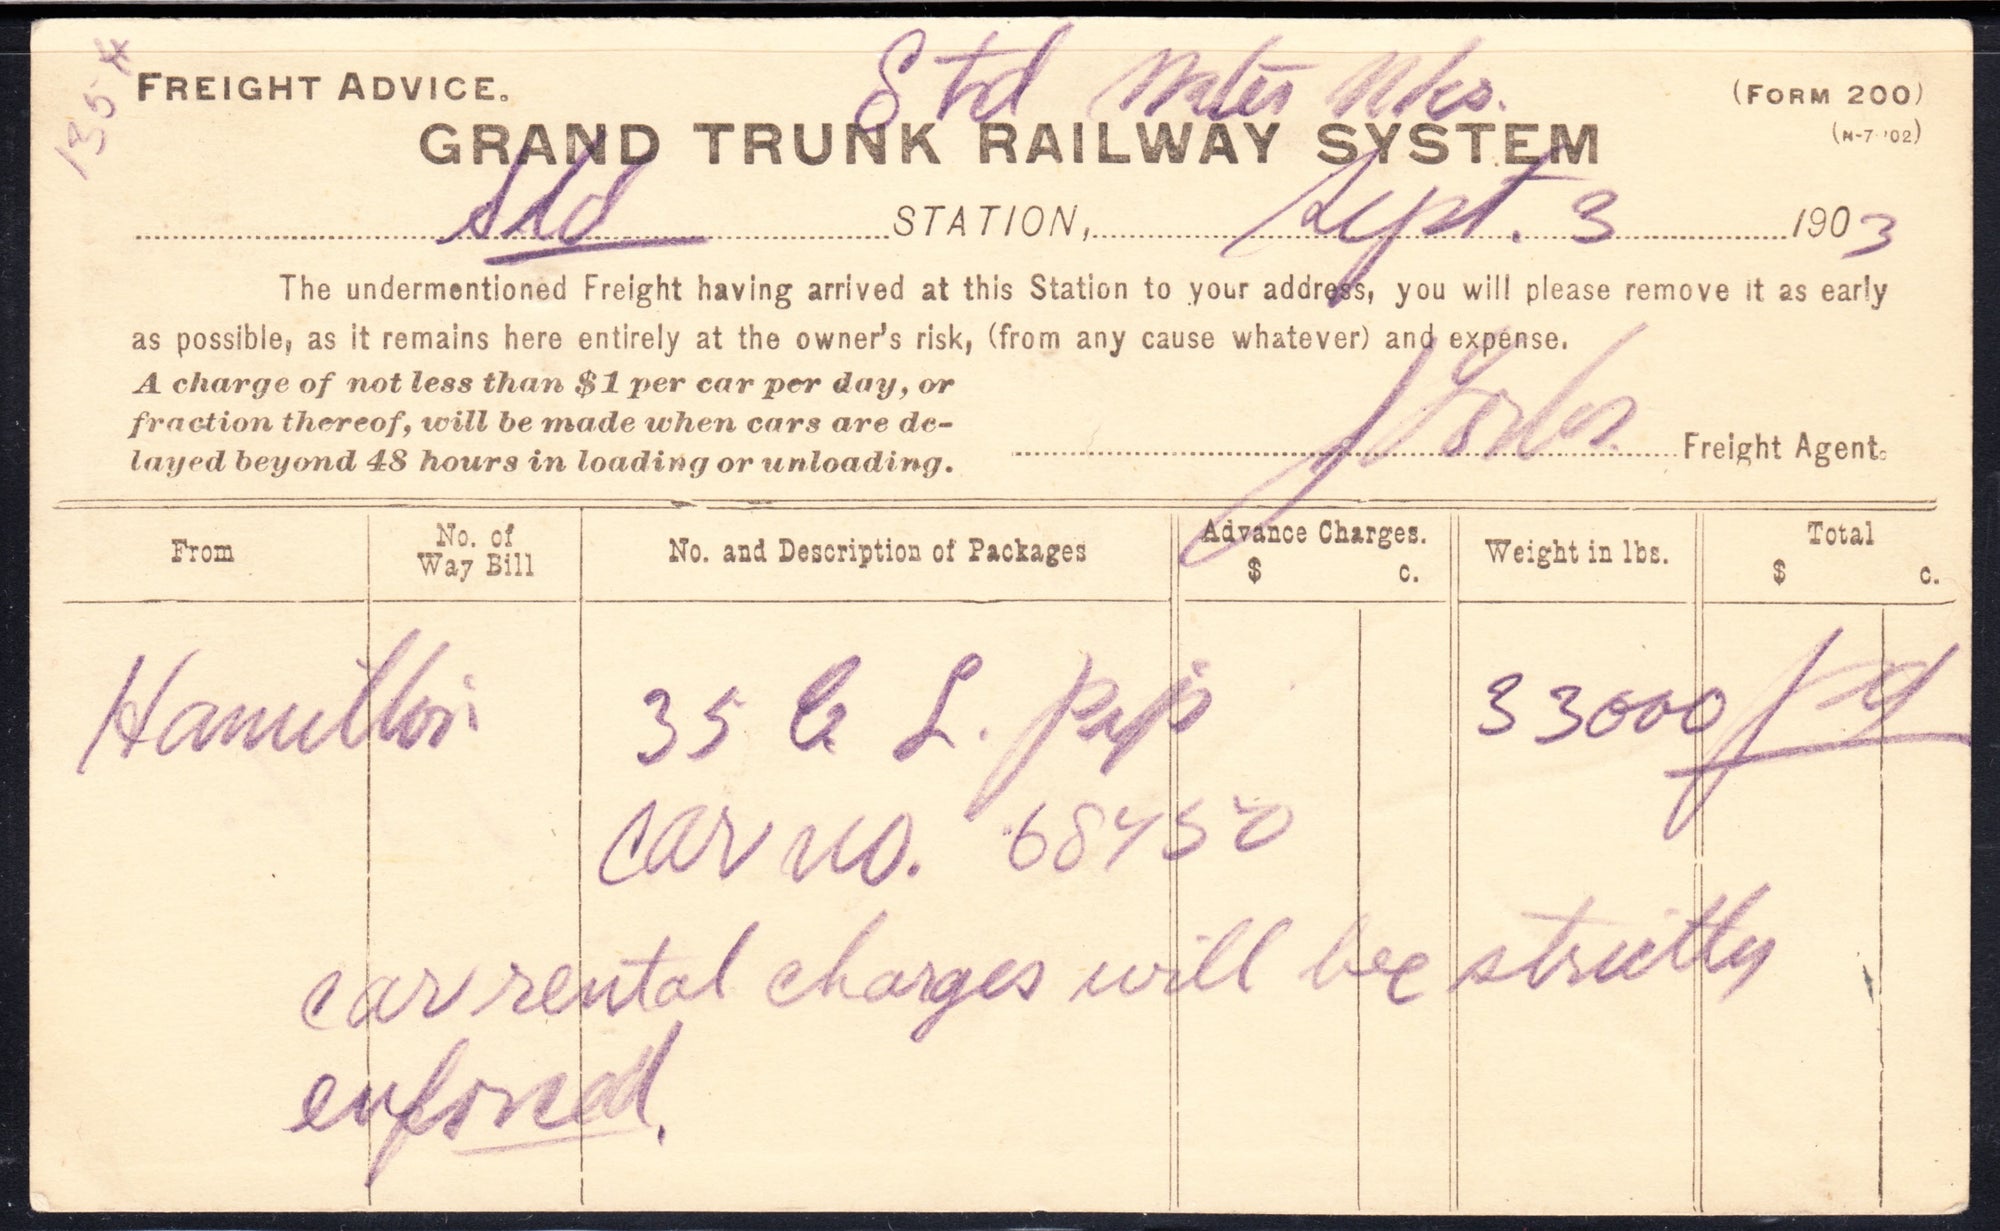 135 #
Std Water Wks.
FREIGHT ADVICE.
(FORM 200)
(N-7-'02)
GRAND TRUNK RAILWAY SYSTEM
Std STATION, Sept. 3 1903
The undermentioned Freight having arrived at this Station to your address, you will please remove it as early
as possible, as it remains here entirely at the owner's risk, (from any cause whatever) and expense.
A charge of not less than $1 per car per day, or
fraction thereof, will be made when cars are de-
layed beyond 48 hours in loading or unloading.
Freight Agent.
From No. of Way Bill No. and Description of Packages Advance Charges. $ c. Weight in lbs. Total $ c.
Hamilton 35 C. I. pips 33000
car no. 68450
car rental charges will be strictly
enforced.